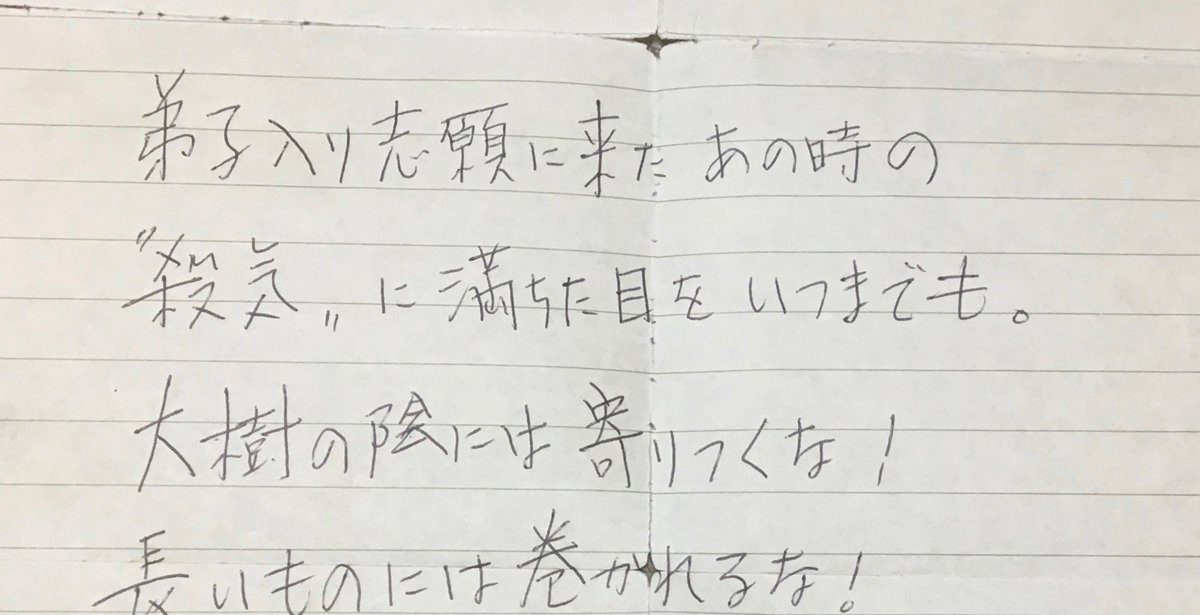 弟子入り志願に来たあの時の
〝殺気〟に満ちた目をいつまでも。
大樹の陰には寄りつくな!
長いものには巻かれるな!